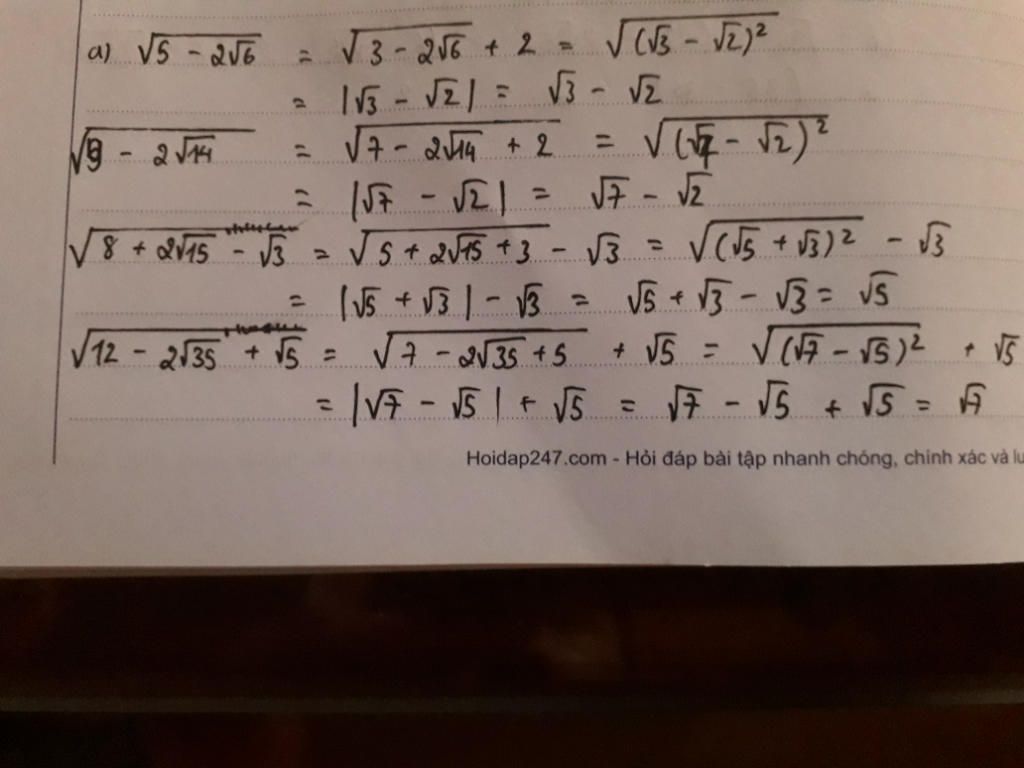 a) √(5 - 2√6) = √(3 - 2√6) + 2 = √((√3 - √2)²)
= |√3 - √2| = √3 - √2
√(9 - 2√14) = √(7 - 2√14 + 2) = √((√7 - √2)²)
= |√7 - √2| = √7 - √2
√(8 + 2√15) - √3 = √(5 + 2√15 + 3) - √3 = √((√5 + √3)²) - √3
= |√5 + √3| - √3 = √5 + √3 - √3 = √5
√(12 - 2√35) + √5 = √(7 - 2√35 + 5) + √5 = √((√7 - √5)²) + √5
= |√7 - √5| + √5 = √7 - √5 + √5 = √7
Hoidap247.com - Hỏi đáp bài tập nhanh chóng, chính xác và